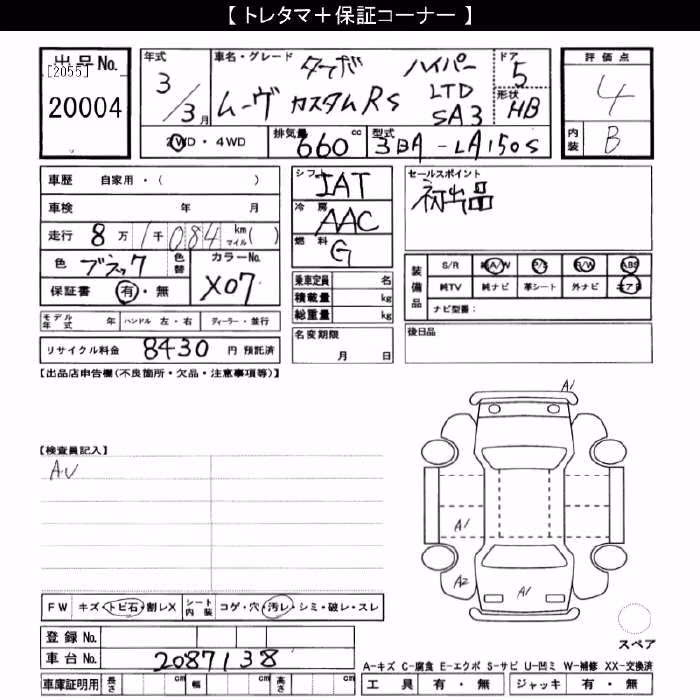 【 トレタマ＋保証コーナー 】
出品No. [2055] 20004
年式 3/3月
車名・グレード ムーヴ カスタムRS ターボ ハイパー LTD SA3
ドア 5
形状 HB
評価点 4
内装 B
2WD・4WD
排気量 660 cc
型式 3BA-LA150S
車歴 自家用・( )
車検 年 月
走行 8万1千084 km マイル( )
色 ブラック 色替 カラーNo. X07
保証書 有・無
シフト IAT
冷房 AAC
燃料 G
セールスポイント
初出品
乗車定員 名
積載量 kg
総重量 kg
装備品 S/R 純A/W P/S R/W ABS
純TV 純ナビ 革シート 外ナビ エアB
ナビ型番:
モデル年式 年 ハンドル 左・右 ディーラー・並行
リサイクル料金 8430 円 預託済
名変期限 月 日
後日品
【出品店申告欄(不良箇所・欠品・注意事項等)】
A1
【検査員記入】
AU
A1
A2
A1
FW キズ・トビ石・割レX シート内装 コゲ・穴・汚レ・シミ・破レ・スレ
スペア
登録No.
車台No. 2087138
A-キズ C-腐食 E-エクボ S-サビ U-凹ミ W-補修 XX-交換済
車庫証明用 長さ cm 幅 cm 高さ cm
工具 有・無 ジャッキ 有・無